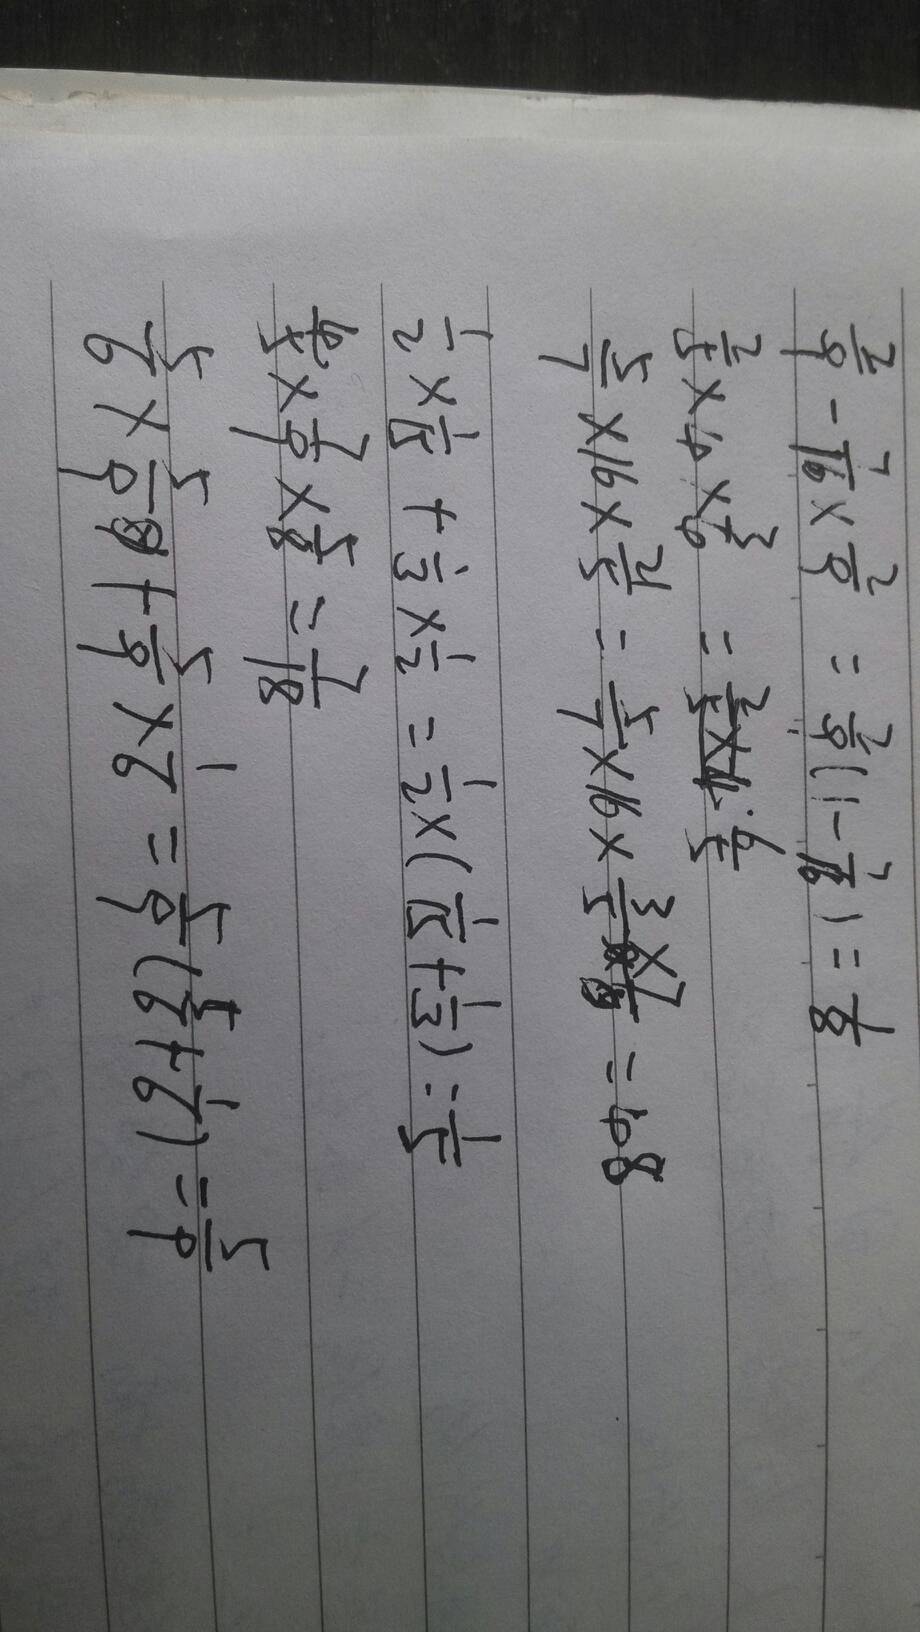 2/9 - 7/16 × 2/9 = 2/9(1 - 7/16) = 1/8
2/5 × 9 × 3/9 = 6/5
5/7 × 16 × 21/5 = 5/7 × 16 × 3×7/5 = 48
1/2 × 1/15 + 1/3 × 1/2 = 1/2 × (1/15 + 1/3) = 1/5
4/5 × 7/9 × 5/8 = 7/18
5/6 × 5/9 + 5/9 × 1/6 = 5/9(5/6 + 1/6) = 5/9